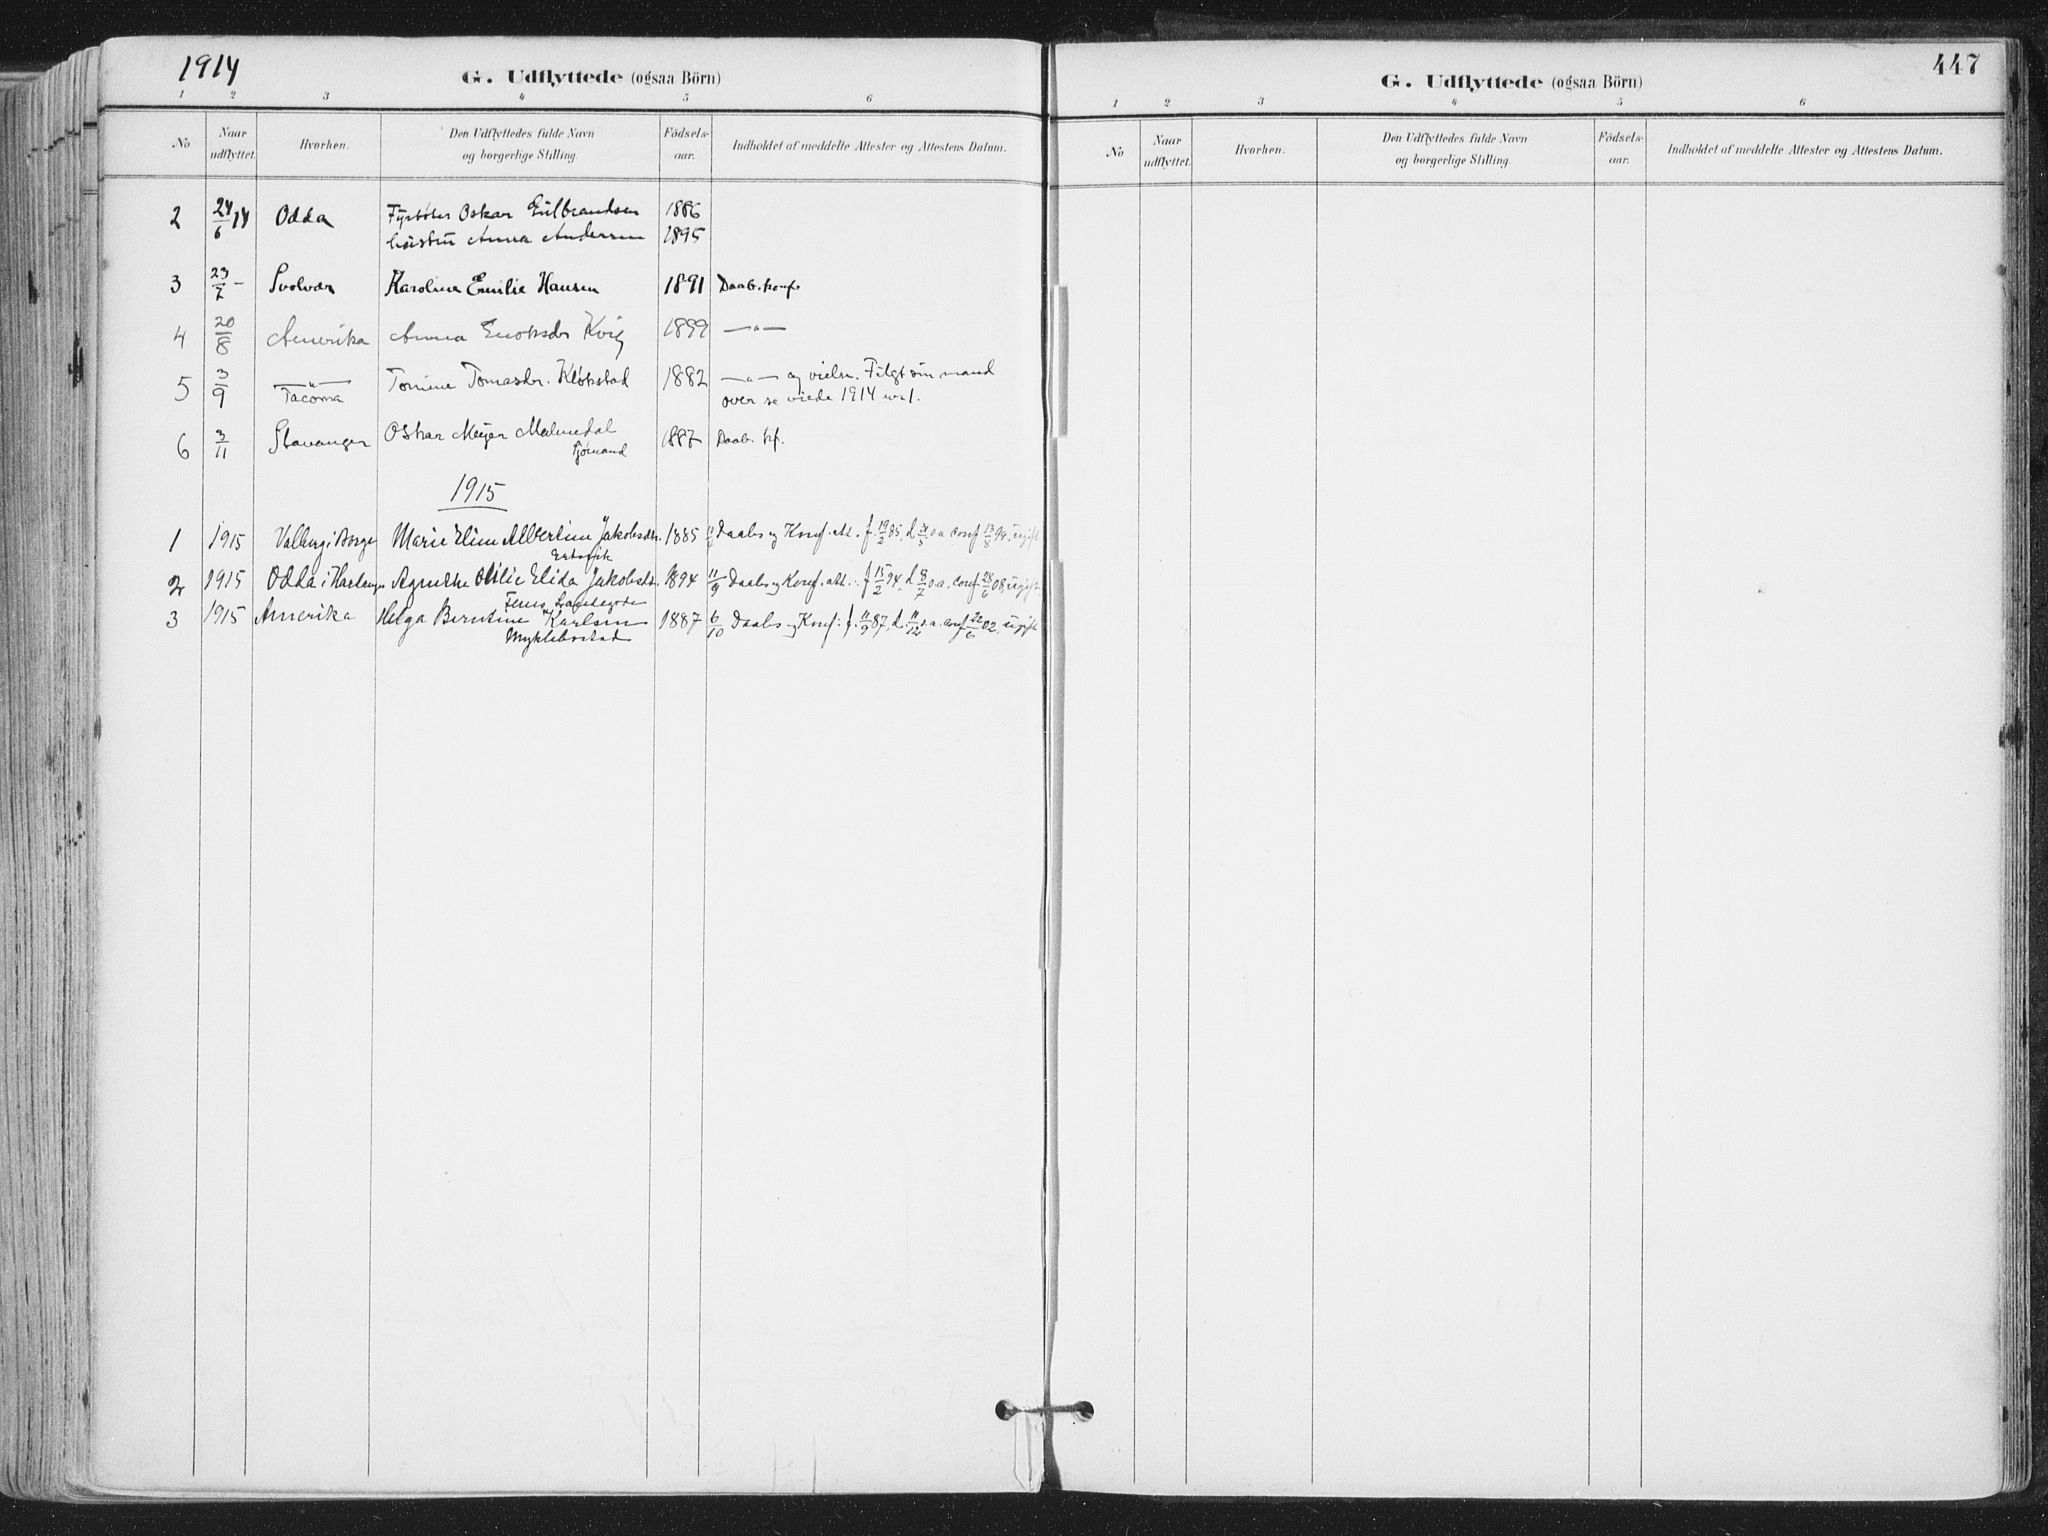 1914
G. Udflyttede (ogsaa Börn)
1 2 3 4 5 6
No Naar udflyttet. Hvorhen. Den Udflyttedes fulde Navn og borgerlige Stilling. Födsels-aar. Indholdet af meddelte Attester og Attestens Datum.
2 24/6 14 Odda Fyrbøter Oskar 1886
Anna Andersen 1895
3 23/7 – Svolvær Karoline Emilie Hansen 1891 Daab. konf.
4 20/8 Amerika Anna Enoksdr Kvig 1899 —"—
5 3/9 —"— Tomine Tomasdr. Kløkstad 1882 —"— og vielse. Fulgt sin mand
Tacoma over se viede 1914
6 3/11 Stavanger Oskar Meyer Malmedal 1887 Daab. kf.
1915
1 1915 Valberg i Borge Marie Eline Albertine Jakobsdr. 1885 Daabs og Konf. att. f. 19/2 85, d. o a. conf 13/8 99, ugift
2 1915 Odda i Hardanger Agnethe Otilie Elida Jakobsdr. 1894 11/9 Daabs og Konf. att.: f 15/2 94, d. 8/7 o a. conf 28/6 08, ugift
Landegode
3 1915 Amerika Helga Berntine Karlsen 1887 6/10 Daabs og Konf: f. 11/9 87, d. 11/12 o a. conf 22/6 02, ugift
Myklebostad
447
G. Udflyttede (ogsaa Börn)
1 2 3 4 5 6
No Naar udflyttet. Hvorhen. Den Udflyttedes fulde Navn og borgerlige Stilling. Födsels-aar. Indholdet af meddelte Attester og Attestens Datum.